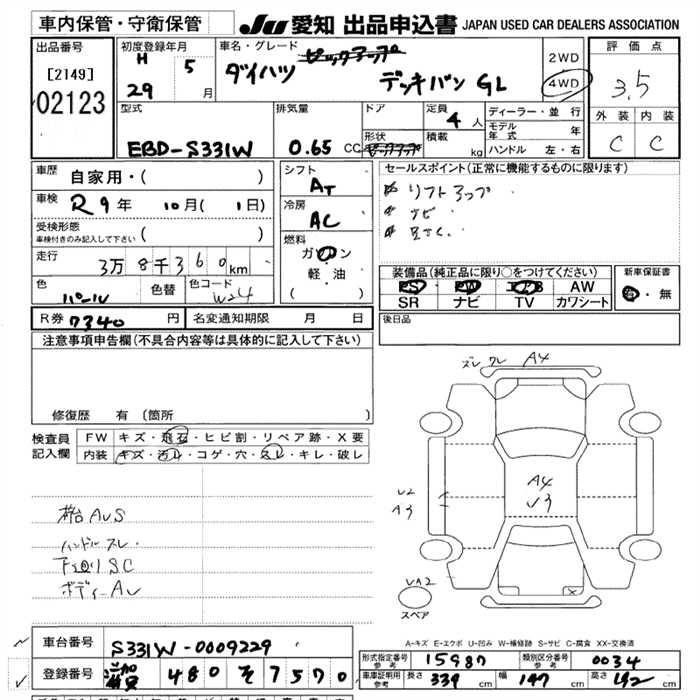 車内保管・守衛保管
JU 愛知 出品申込書 JAPAN USED CAR DEALERS ASSOCIATION
出品番号
[2149]
02123
初度登録年月
H 29 5 月
車名・グレード
ダイハツ デッキバン GL
2WD
4WD
評価点
3.5
外装 内装
C C
型式
EBD-S331W
排気量
0.65 CC
ドア
形状
定員
4 人
積載
kg
ディーラー・並行
モデル年式 年
ハンドル 左・右
車歴
自家用・( )
車検
R9年 10月( 1日)
受検形態
車検付きのみ記入して下さい ( )
走行
3万8千360km
色
パール
色替
色コード
W24
シフト
AT
冷房
AC
燃料
ガソリン
軽・油
( )
セールスポイント(正常に機能するものに限ります)
リフトアップ
ナビ
装備品(純正品に限り○をつけてください)
PS PW エアB AW
SR ナビ TV カワシート
新車保証書
有・無
R券 7340 円
名変通知期限 月 日
後日品
注意事項申告欄(不具合内容等は具体的に記入して下さい)
修復歴 有 (箇所 )
検査員記入欄
FW キズ・飛石・ヒビ割・リペア跡・X要
内装 キズ・汚れ・コゲ・穴・スレ・キレ・破レ
ハンドルスレ
下回りSC
ズレ ワレ A4
A4
U3
U2
A3
UA2
スペア
A-キズ E-エクボ U-凹み W-補修跡 S-サビ C-腐食 XX-交換済
車台番号 S331W-0009229
登録番号 480 そ 7570
形式指定番号 参考 15987
類別区分番号 参考 0034
車庫証明用 参考 長さ 339 cm 幅 147 cm 高さ 192 cm